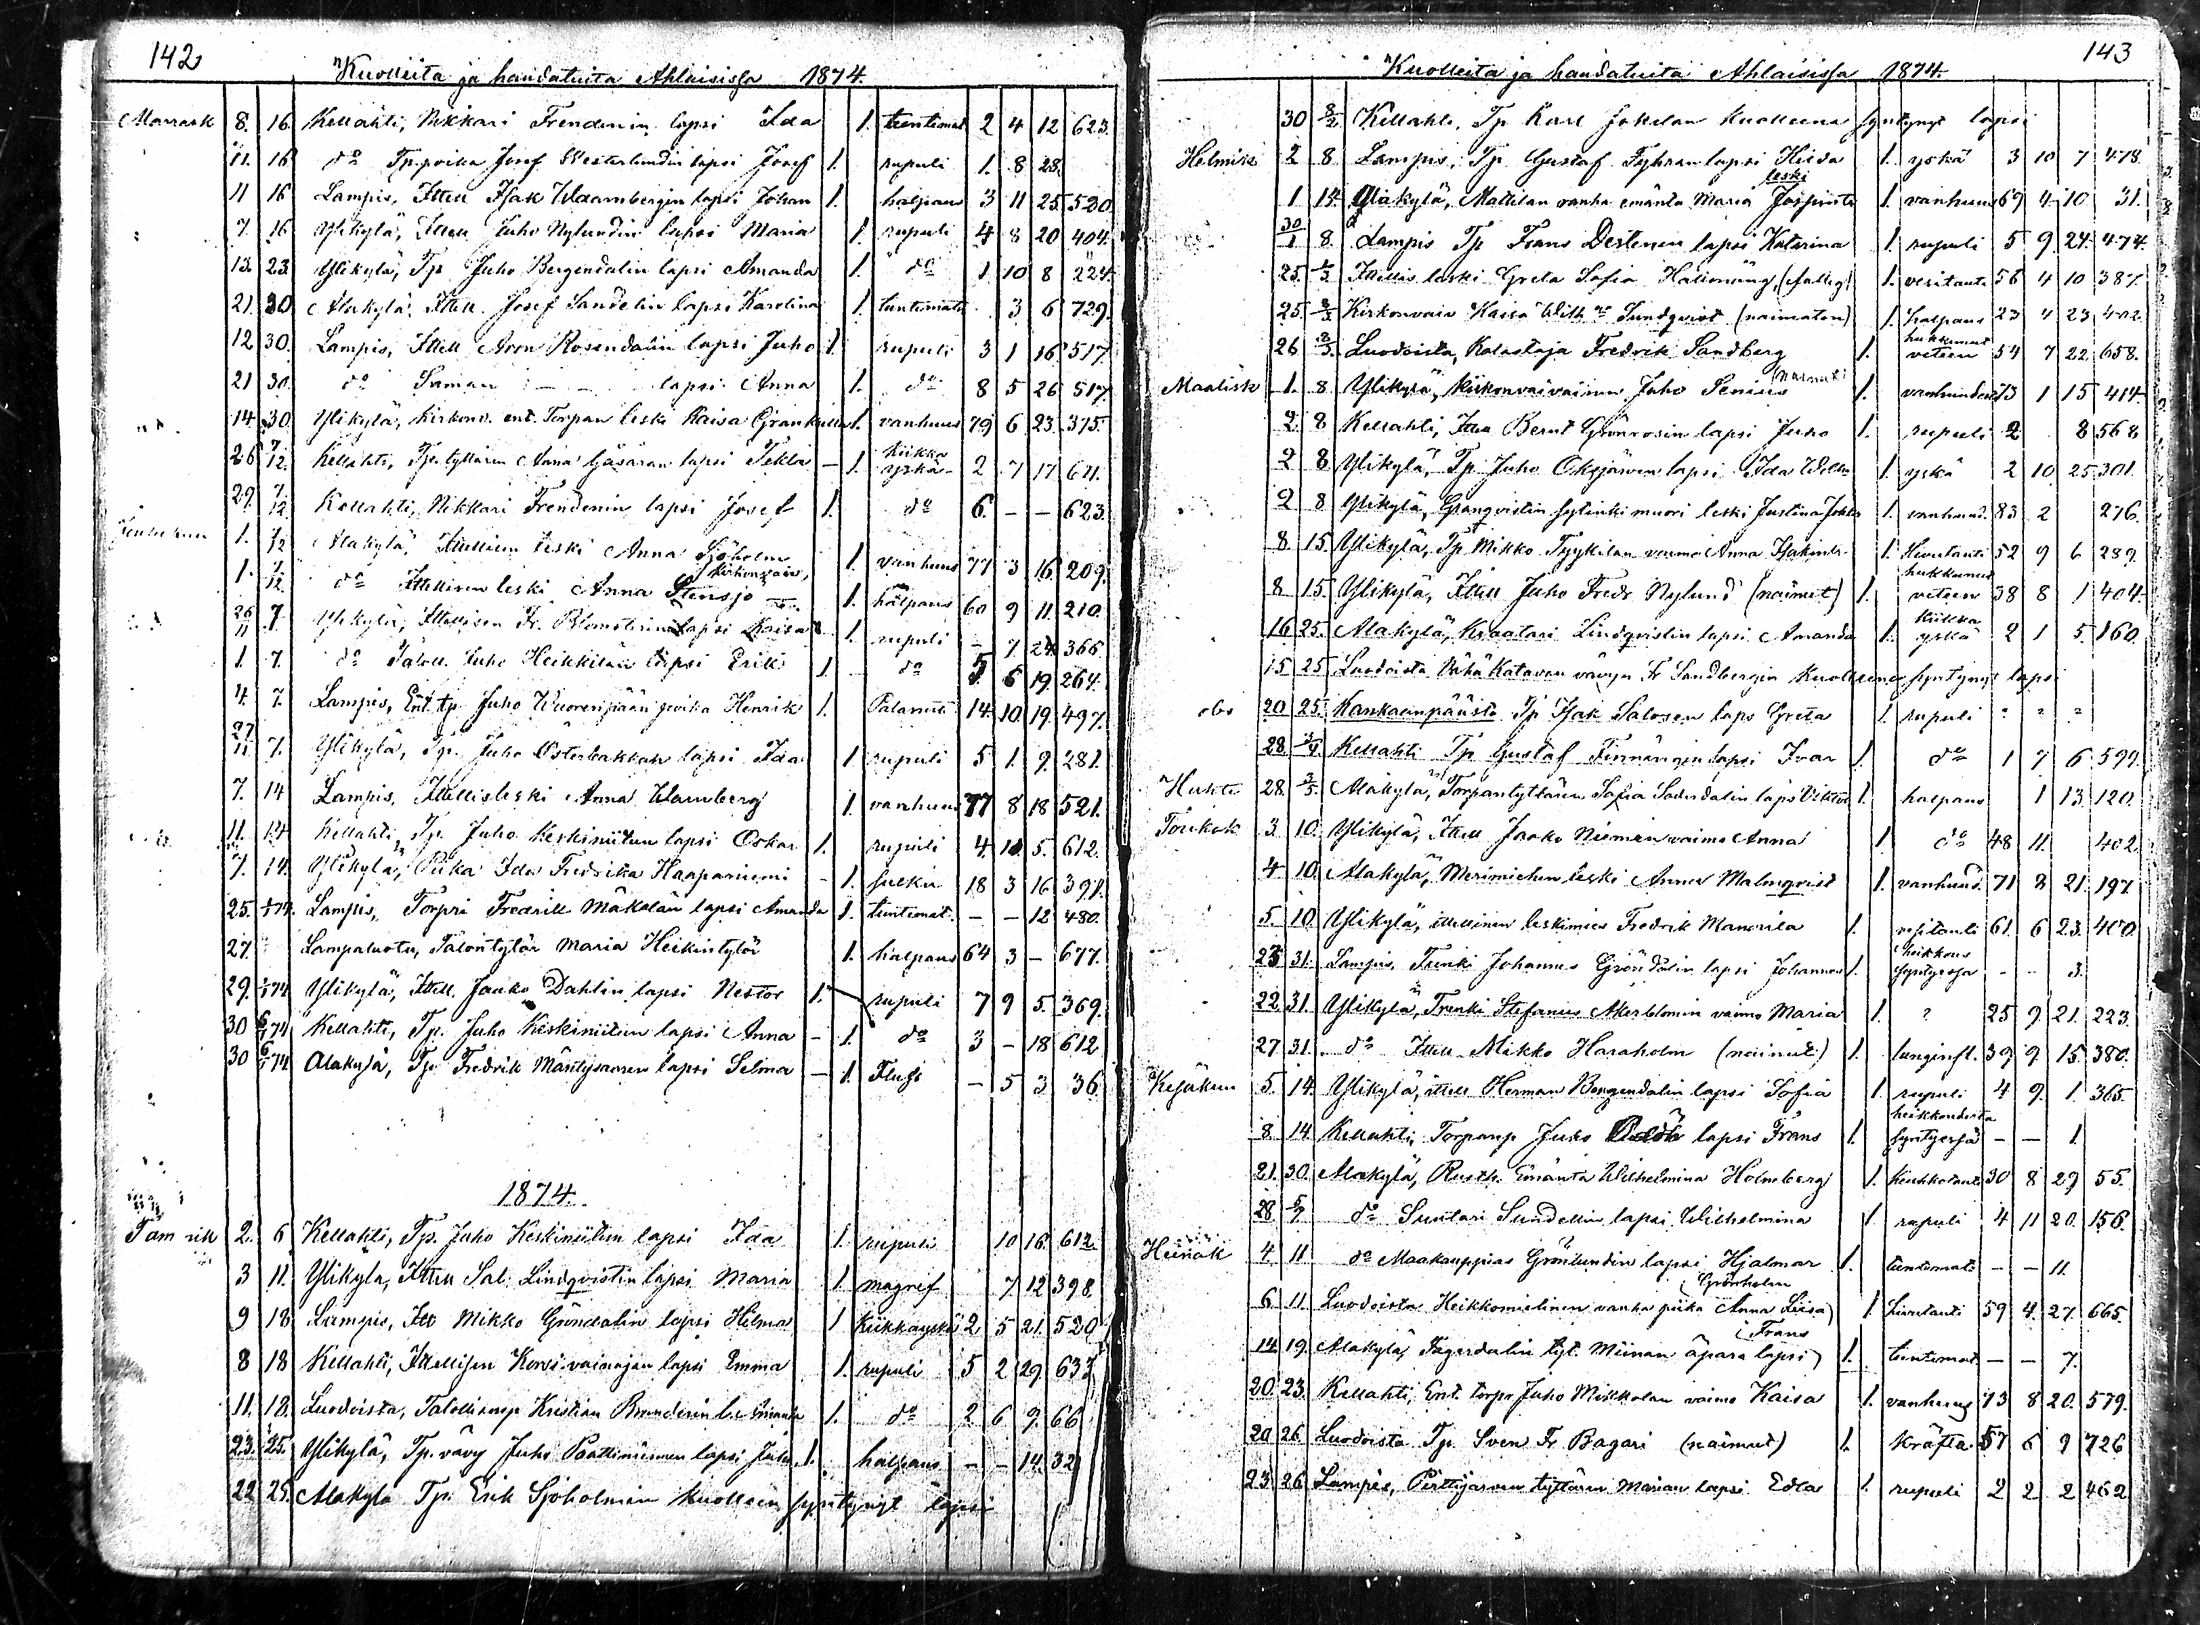 142
Kuolleita ja haudatuita Ahlaisissa 1874.
Marrask 8. 16. Kellahti, Nikkari Frendenin lapsi Ida 1. tuntemat 2 4 12 623.
11. 16 do Tp. poika Josef Westerlundin lapsi Josef 1. rupuli 1. 8 28.
11 16 Lampis, Itell Isak Waarnbergin lapsi Johan 1. halpaus 3 11 25. 520
7. 16 Ylikylä, Itell Juho Nylundin lapsi Maria 1. rupuli 4 8 20 404.
13. 23. Ylikylä, Tp. Juho Bergendalin lapsi Amanda 1. do 1 10 8 224.
21. 30 Alakylä, Itell. Josef Sandelin lapsi Karolina 1. tuntemat 3 6 729.
12 30. Lampis, Itell Aron Rosendalin lapsi Juho 1. rupuli 3 1 16 517
21 30. do Saman - - - lapsi Anna 1. do 8 5 26 517.
14. 30. Ylikylä, Kirkonv. ent. Torpan leski Kaisa Grankulla 1. vanhuus 79 6 23. 375.
26 7/12. Kellahti, Tp. tyttären Anna lapsi Tekla - 1. kiikka yskä 2 7 17 611.
29. 7/12 Kellahti, Nikkari Frendenin lapsi Josef 1. do 6. - - 623.
1. 7/12 Alakylä, Itellisen leski Anna Sjöholm 1. vanhuus 77 3 16. 209.
1. 7/12. do Itellisen leski Anna Stensjö kirkonvaiv. 1. halpaus 60 9 11. 210.
26/11 7. Ylikylä, Itellisen Fr. Blomsterin lapsi Kaisa 1. rupuli - 7 24 366
1. 7. do Taloll. Juho Heikkilän lapsi Erik 1. do 5 6 19. 264.
4. 7. Lampis, Ent. tp. Juho Wuorenpään poika Henrik 1. Palanut 14. 10. 19 497.
27/11 7. Ylikylä, Tp. Juho Österbakkan lapsi Ida 1 rupuli 5 1. 9. 281.
7. 14 Lampis, Itellisleski Anna Warnberg 1 vanhuus 77 8 18 521.
11. 14 Kellahti, Tp. Juho Keskiniitun lapsi Oskar 1. rupuli 4. 10. 5. 612.
7. 14. Ylikylä, Piika Ida Fredrika Haapaniemi - 1. 18 3 16 391.
25. Lampis, Torpri Fredrik Mäkelän lapsi Amanda 1. tuntemat. - - 12 480.
27. Lampaluoto, Talontytär Maria Heikintytär 1. halpaus 64 3 - 677.
29. Ylikylä, Itell. Jaako Dahlin lapsi Nestor 1. rupuli 7 9 5. 369.
30 6/1 74 Kellahti, Tp. Juho Keskiniitun lapsi Anna - 1. do 3 - 18 612
30 6/1 74 Alakylä, Tp. Fredrik Mäntysaaren lapsi Selma - 1. - 5 3 36.
1874.
Tamrik 2. 6 Kellahti, Tp. Juho Keskiniitun lapsi Ida 1. rupuli 10 16. 612.
3 11. Ylikylä, Itell Sal. Lindqvistin lapsi Maria 1. magref 7 12 398.
9 18 Lampis, Itell Mikko Gröndalin lapsi Hilma 1 kiikkayskä 2 5 21. 520
8 18 Kellahti, Itellisen Korsi-vainajan lapsi Emma 1. rupuli 5 2 29 633
11. 18. Luodoista, Talollisenp Kristian Branderin 1. do 2 6 9. 66
23. 25. Ylikylä, Tp. vävy Juho lapsi Juho 1. halpaus - - 14. 32
22 25. Alakylä Tp. Erik Sjöholmin kuolleen syntynyt lapsi
143
Kuolleita ja haudatuita Ahlaisissa 1874.
30 8/2 Kellahti, Tp Karl Jokelan kuolleena syntynyt lapsi
Helmik 2 8. Lampis, Tp Gustaf Fyhran lapsi Hilda 1. yskä 3 10 7 478.
1 15. Ylikylä, Mattilan vanha emäntä Maria leski 1. vanhuus 69 4 10. 31.
30/1 8. Lampis Tp Frans Destenen lapsi Katarina 1. rupuli 5 9 24. 474.
25. 1/3 Itellis leski Greta Sofia 1. vesitauti 56 4 10 387.
25. Kirkonvaiv Kaisa Sundqvist (naimaton) 1. halpaus 23 4 23 402
26 Luodoista, Kalastaja Fredrik Sandberg 1. hukkunut veteen 54 7 22 658.
Maalisk 1. 8 Ylikylä, Kirkonvaivainen Juho Senius (nainut) 1. vanhuuden 73 1 15 414.
2. 8 Kellahti, Itell Bernt Grönroosin lapsi Juho 1. rupuli 2 8 568
2 8 Ylikylä, Tp. Juho Oksjärven lapsi Ida 1 yskä 2 10 25. 301.
2 8 Ylikylä, Granqvistin muori leski Justina 1. vanhuud. 83 2 276.
8 15. Ylikylä, Tp. Mikko Tyykilän vaimo Anna 1. 52 9 6 289.
8 15. Ylikylä, Itell Juho Fredr Nylund (nainut) 1. hukkunut veteen 38 8 1 404.
16. 25. Alakylä, Kraatari Lindqvistin lapsi Amanda 1. kiikka yskä 2 1 5. 160.
15 25. Luodoista Vähä Katavan vävyn Fr Sandbergin kuolleena syntynyt lapsi
obs 20. 25. Kankaanpäästä Tp Isak Salosen laps Greta 1. rupuli ? ? ?
28. Kellahti Tp. Gustaf lapsi Ivar 1. do 1 7 6 599.
Huhti 28. 3/5 Alakylä, Torpantyttären Sofia Soderdalin lapsi Viktor 1. halpaus 1 13. 120.
Toukok 3. 10. Ylikylä, Itell Jaako Niemen vaimo Anna 1. do 48 11. 402
4 10. Alakylä, Merimiehen leski Anna Malmqvist 1. vanhuud. 71 8 21. 197
5. 10. Ylikylä, itellinen leskimies Fredrik 1. vesitauti 61. 6 23. 400.
25 31. Lampis, Trenki Johannes Gröndalin lapsi Johannes 1. heikkous syntyessä - - 3.
22. 31. Ylikylä, Trenki Stefanus Åkerblomin vaimo Maria 1. ? 25 9. 21. 223.
27 31. do Itell Mikko Haraholm (nainut) 1. lunginfl. 39 9 15. 380.
Kesäkuu 5. 14. Ylikylä, itell Herman Bergendalin lapsi Sofia 1. rupuli 4 9. 1. 365.
8. 14. Kellahti, Torparip Juho lapsi Frans 1. heikkoudesta syntyessä - - 1.
21. 30. Alakylä, Rusth. Emäntä Wilhelmina Holmberg 1. keuhkotauti 30 8 29 55.
28 5/7 do Suntari Sundellin lapsi Wilhelmina 1. rupuli 4 11 20. 156.
Heinäk 4 11 do Maakauppias Grönlundin lapsi Hjalmar 1. tuntemat - - 11.
6 11. Luodoista Heikkomielinen vanha piika Anna Liisa Grönholm 1. 59 4. 27. 665.
14 19. Alakylä, Fagerdalin tyt. Miinan äpärä lapsi (Frans) 1. tuntemat - - 7.
20. 23. Kellahti, Ent. torpr Juho Mikkolan vaimo Kaisa 1. vanhuus 73 8 20. 579.
20 26. Luodoista Tp. Sven Fr. Bagari (nainut) 1. kräfta 57 6 9 726
23. 26. Lampis, Pirttijärven tyttären Marian lapsi Edla 1. rupuli 2 2 2 462